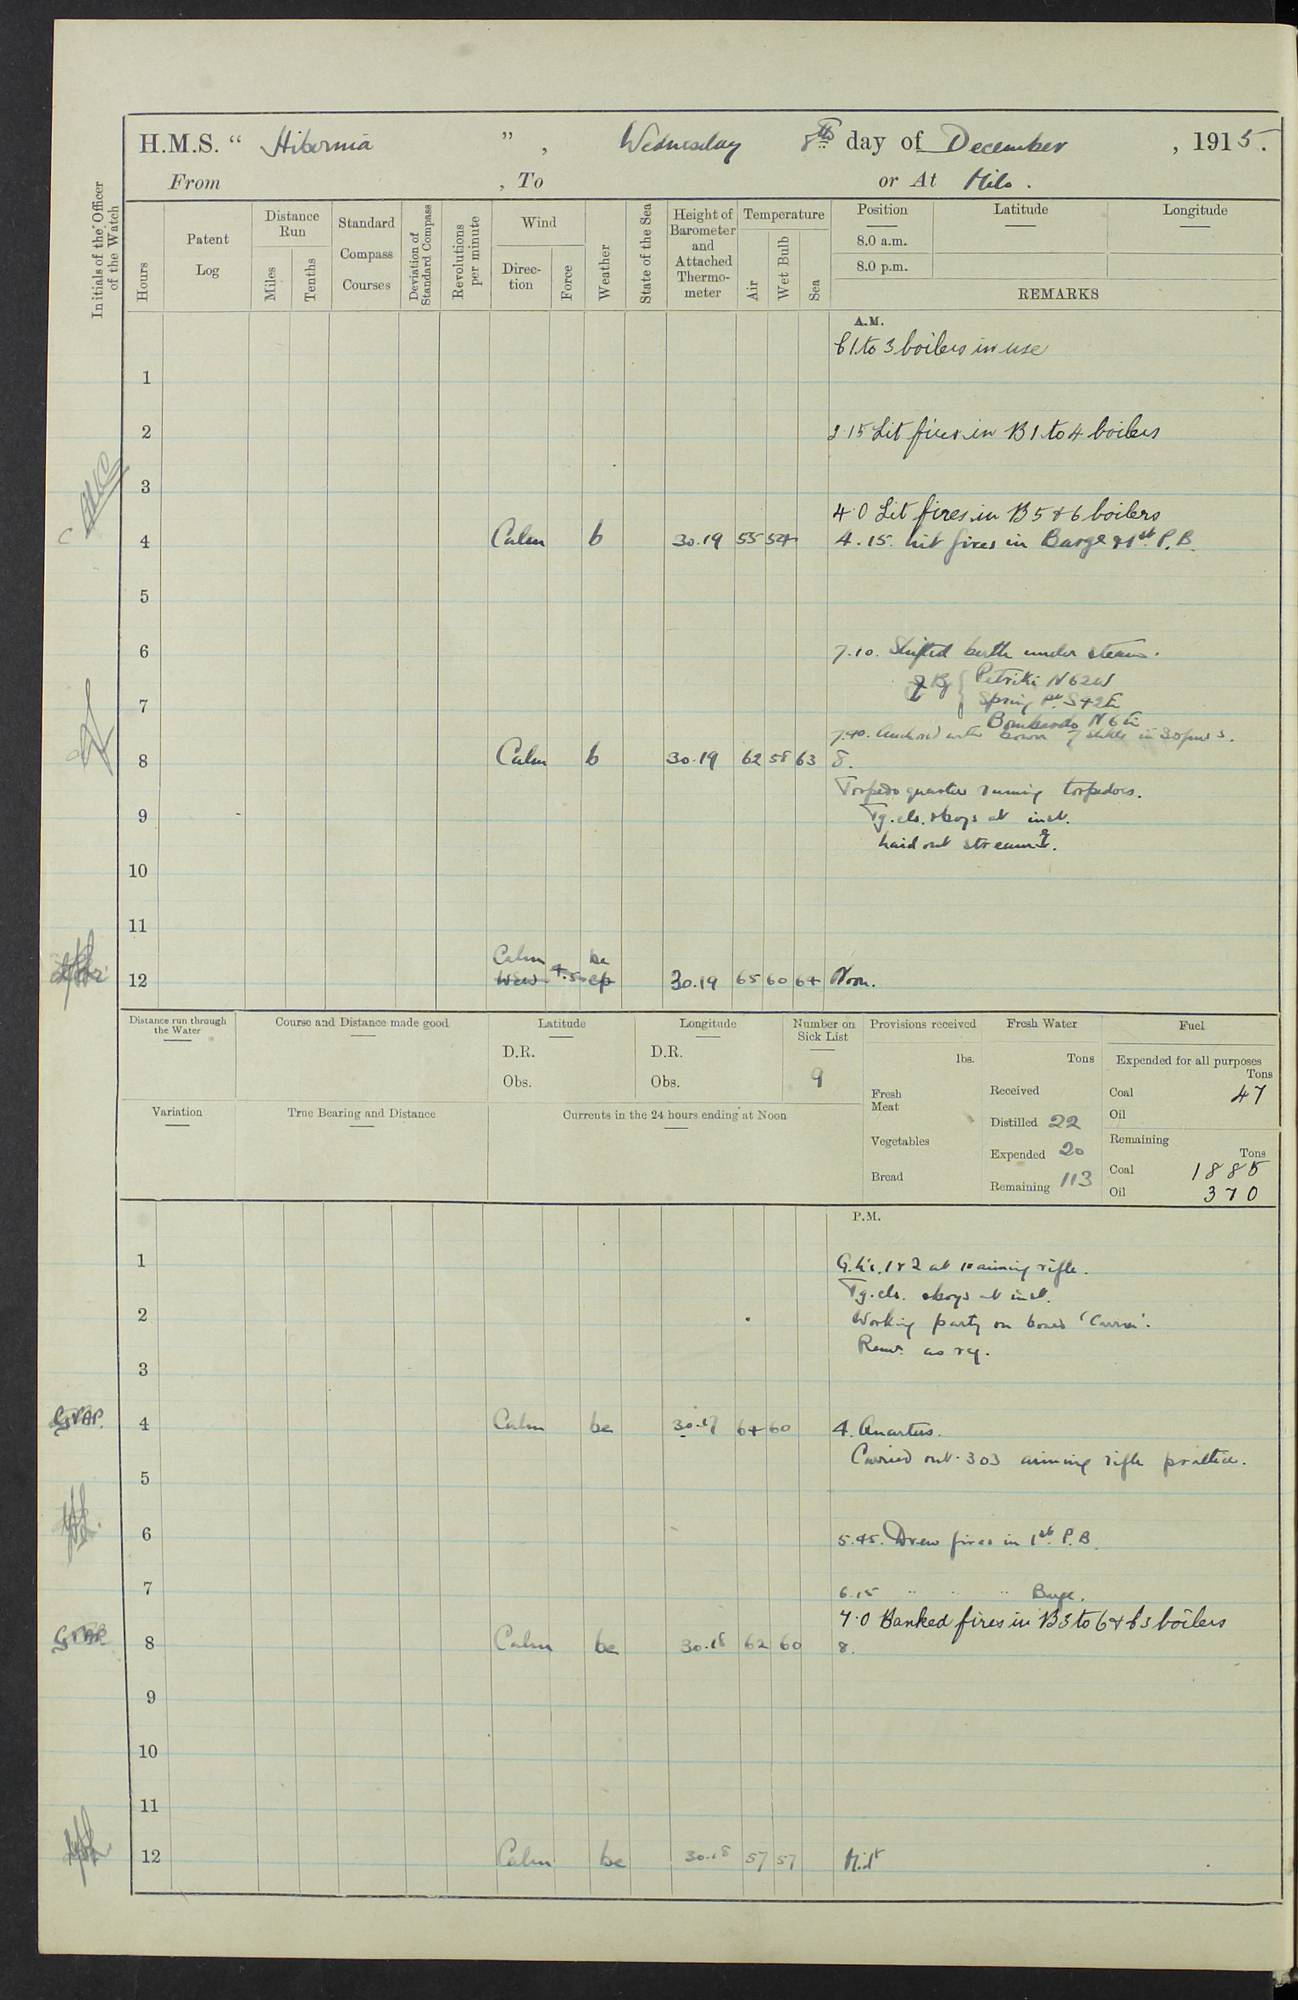 H.M.S. " Hibernia ", Wednesday 8th day of December, 1915.
From , To or At Milo.
Initials of the Officer of the Watch
Hours
Patent Log
Distance Run
Miles
Tenths
Standard Compass Courses
Deviation of Standard Compass
Revolutions per minute
Wind
Direction
Force
Weather
State of the Sea
Height of Barometer and Attached Thermometer
Temperature
Air
Wet Bulb
Sea
Position
8.0 a.m.
8.0 p.m.
Latitude
Longitude
REMARKS
A.M.
1 to 3 boilers in use
1
2 2.15 Lit fires in B 1 to 4 boilers
3
4.0 Lit fires in B 5 & 6 boilers
4 Calm b 30.19 55 54 4.15. Lit fires in Barge & 1st P.B.
5
6 7.10. Shifted berth under steam.
Petriki N62W
7 Spring Pt. S42E
Bombarda N6E
7.40. Anchored with
8 Calm b 30.19 62 58 63 8.
Torpedo quarters running torpedoes.
9 Tg. cls. & boys at inst.
Laid out stream
10
11
Calm bc
12 30.19 65 60 64 Noon.
Distance run through the Water
Course and Distance made good
Latitude
D.R.
Obs.
Longitude
D.R.
Obs.
Number on Sick List
9
Provisions received
lbs.
Fresh Meat
Vegetables
Bread
Fresh Water
Tons
Received
Distilled 22
Expended 20
Remaining 113
Fuel
Expended for all purposes
Tons
Coal 47
Oil
Remaining
Tons
Coal 1885
Oil 370
Variation
True Bearing and Distance
Currents in the 24 hours ending at Noon
P.M.
1 1 & 2 at aiming rifle.
Tg. cls. & boys at inst.
2 Working party on board
as req.
3
4 Calm bc 64 60 4. Quarters.
Carried out .303 aiming rifle practice.
5
6 5.45. Drew fires in 1st P.B.
7 6.15 " " " Barge.
7.0 Banked fires in B3 to 6 & boilers
8 Calm bc 30.18 62 60 8.
9
10
11
12 Calm bc 30.18 57 57 Mid